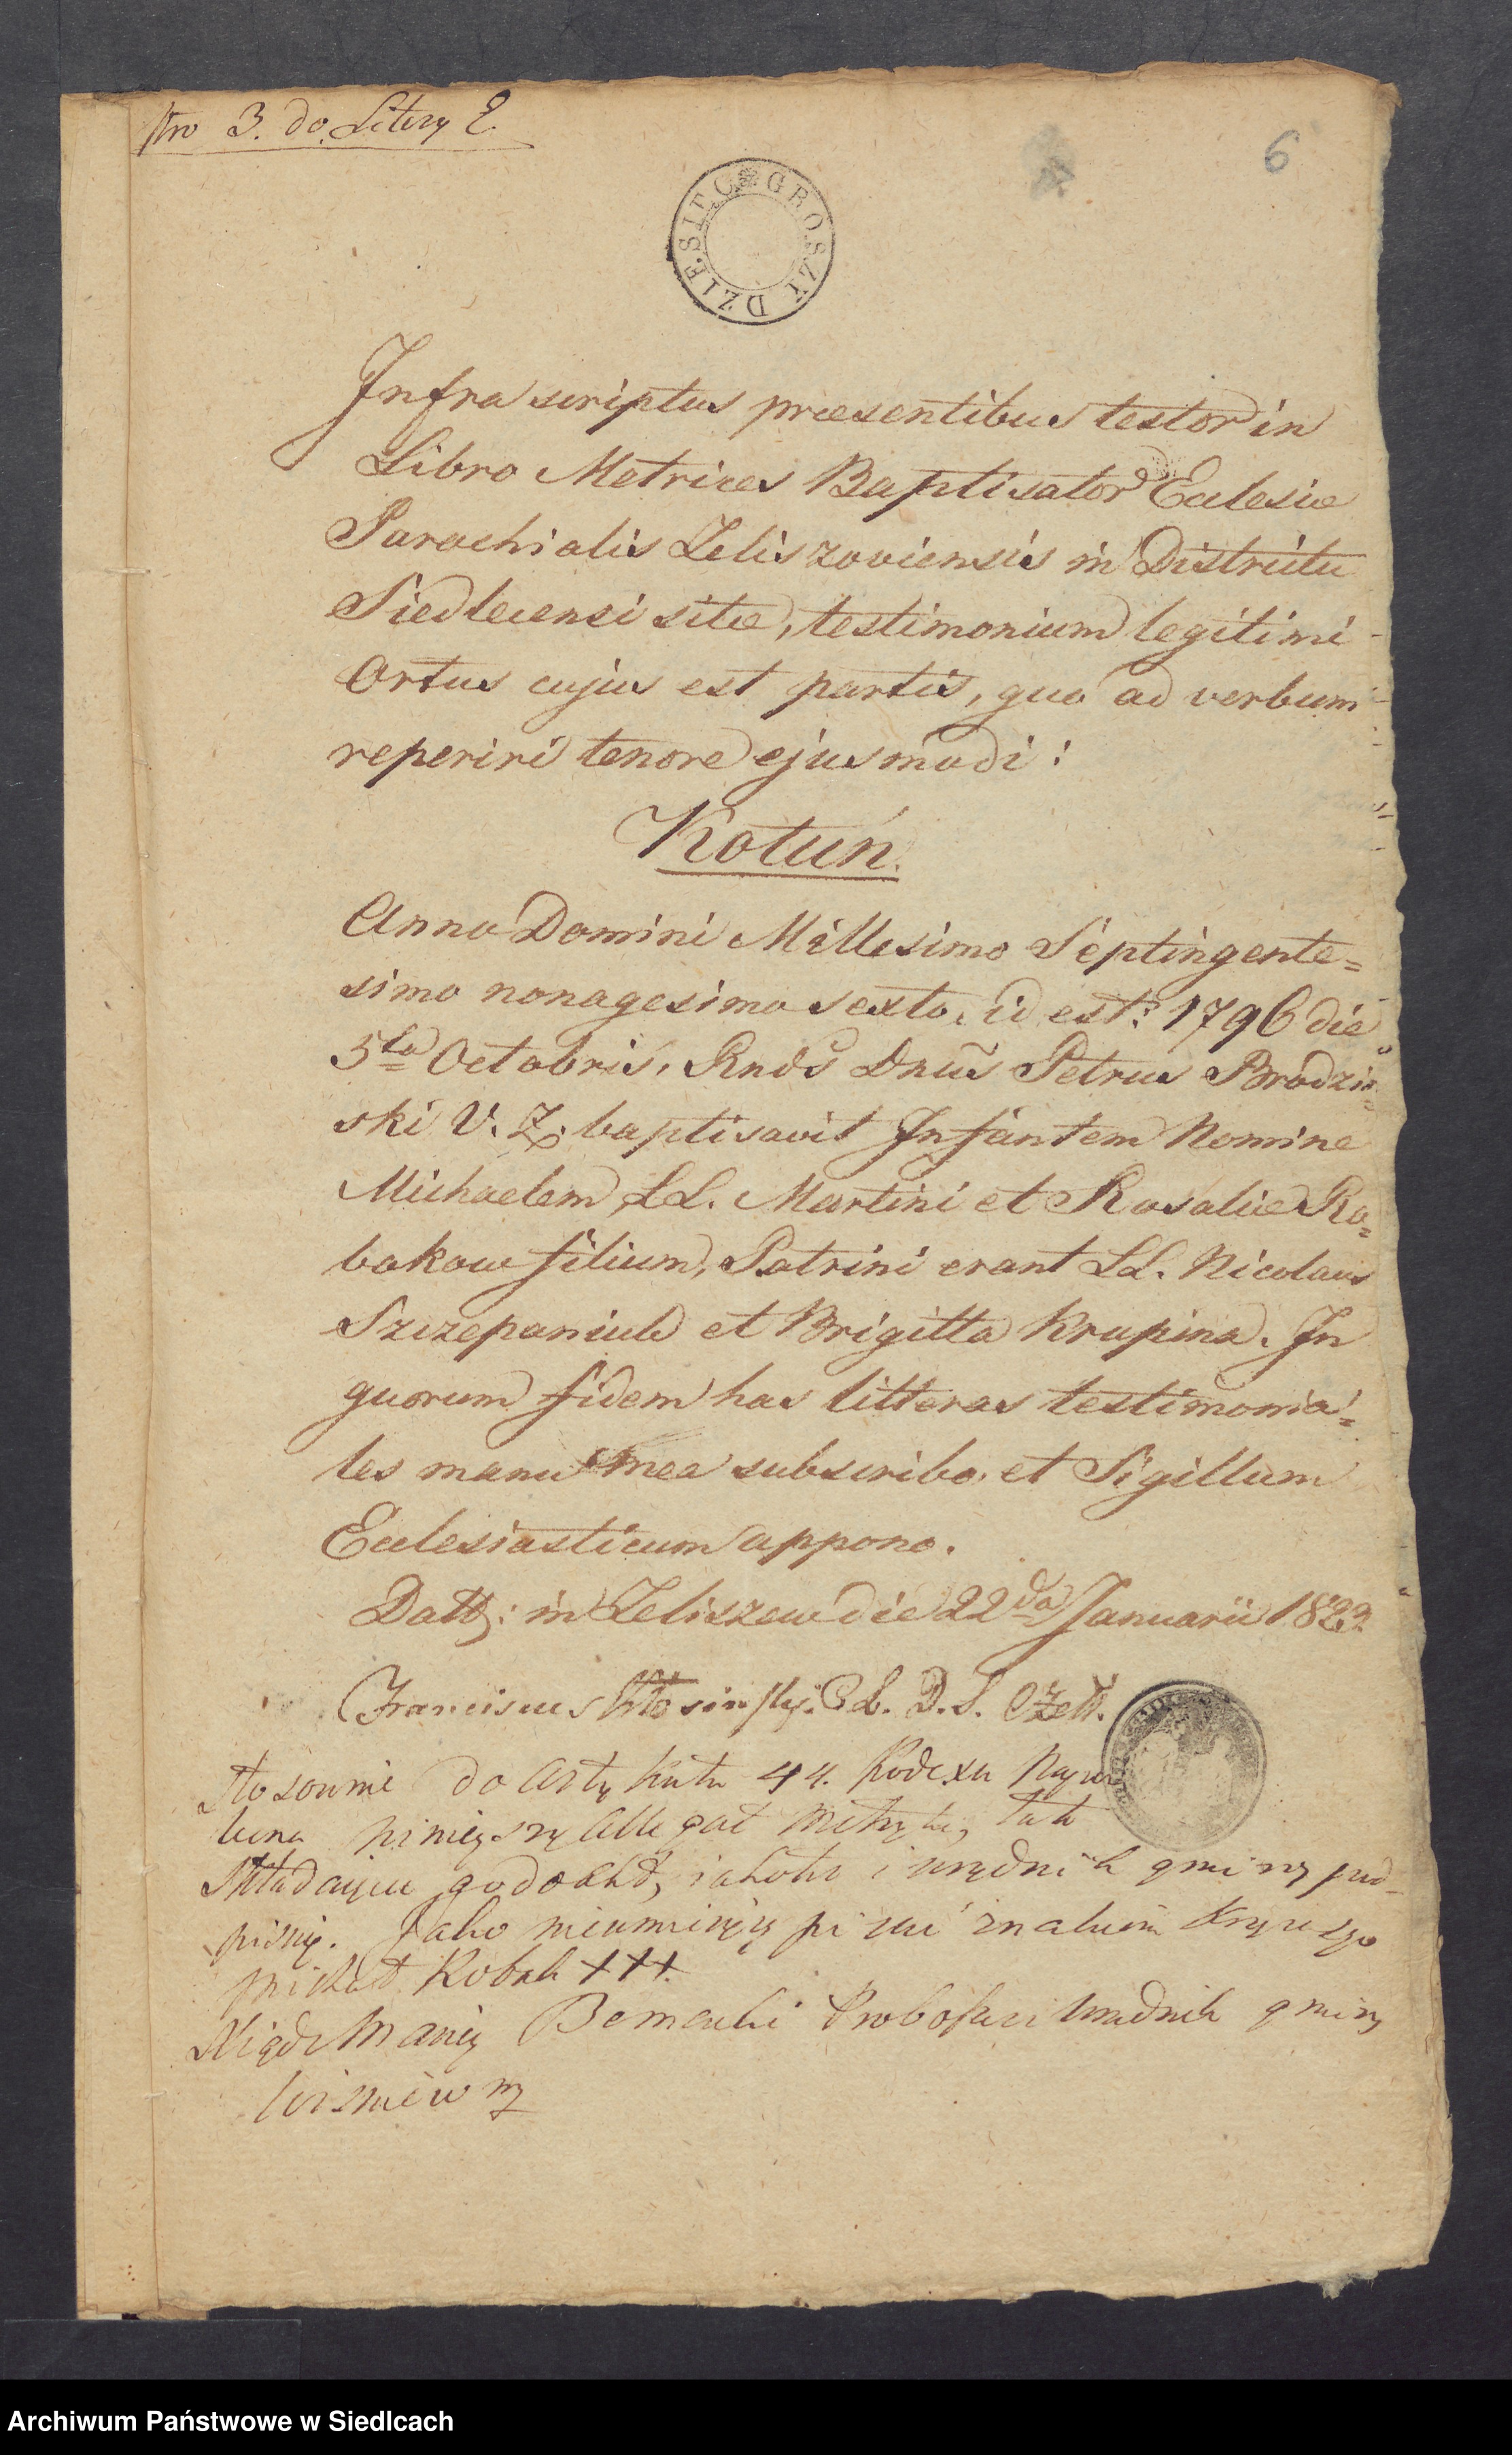 Nro 3. do Litery E.
6
DZIESIĘC GROSZY
Infra scriptus præsentibus testor in
Libro Metrices Baptisator Ecclesiæ
Parochialis Zeliszoviensis in Districtu
Siedlecensi sitæ, testimonium legitimi
Ortus cujus est partis, quo ad verbum
reperiri tenore ejusmodi:
Kotuń.
Anno Domini Millesimo Septingente=
simo nonagesimo sexto, id est: 1796 die
5ta Octobris, Rnds Dnus Petrus Brodzin=
ski V. Z. baptisavit Infantem Nomine
Michaelem, LL. Martini et Rosaliæ Ro=
bakow filium, Patrini erant LL. Nicolaus
Szczepaniuk et Brigitta Krupina. In
quorum fidem has litteras testimonia=
les manu mea subscribo, et Sigillum
Ecclesiasticum appono.
Datt: in Zeliszew die 22da Januarii 1822
Franciscus
Stosownie do Artykułu 44. Kodexu
ninieyszy Allegat Metryki, tak
Składaiący go oycież, iakoto i urzędnik gminy pod=
pisuię. Jako nieumieiący pisać znakiem Krzyża Sgo
Michał Robak +++
Xiądz Maciey Proboszcz Urzędnik gminy
Wiśniew
Archiwum Państwowe w Siedlcach